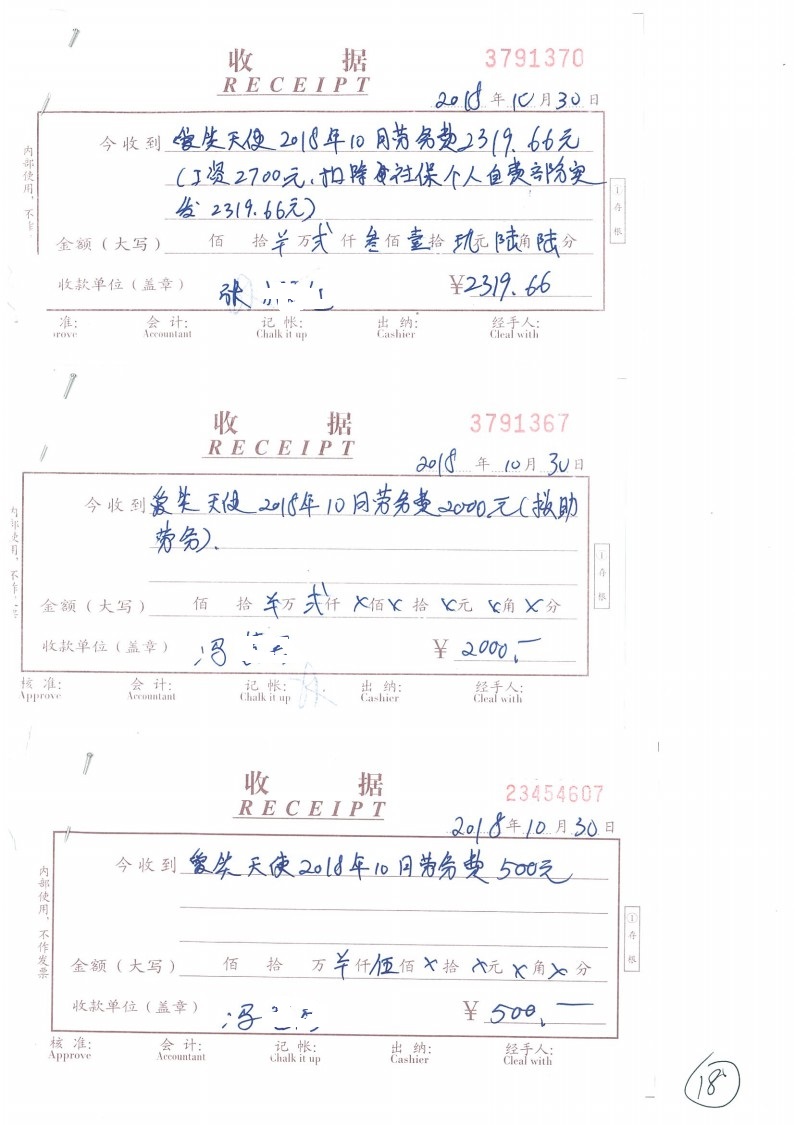 收 据 3791370
RECEIPT
2018 年 10 月 30 日
今收到 爱笑天使 2018年10月劳务费2319.66元
(工资2700元,扣除 社保个人自费部份实
发 2319.66元)
金额(大写) 佰 拾 羊 万 弍 仟 叁 佰 壹 拾 玖 元 陆 角 陆 分
收款单位(盖章) 张 ¥2319.66
准: 会 计: 记 帐: 出 纳: 经手人:
prove Accountant Chalk it up Cashier Cleal with
内部使用,不作
①存根
收 据 3791367
RECEIPT
2018 年 10 月 30 日
今收到 爱笑天使 2018年10月劳务费2000元(救助
劳务).
金额(大写) 佰 拾 羊 万 弍 仟 × 佰 × 拾 × 元 × 角 × 分
收款单位(盖章) 冯 ¥ 2000.—
核 准: 会 计: 记 帐: 出 纳: 经手人:
Approve Accountant Chalk it up Cashier Cleal with
内部使用,不作
①存根
收 据 23454607
RECEIPT
2018 年 10 月 30 日
今收到 爱笑天使2018年10月劳务费 500元
金额(大写) 佰 拾 万 羊 仟 伍 佰 × 拾 × 元 × 角 × 分
收款单位(盖章) 冯 ¥ 500.—
核 准: 会 计: 记 帐: 出 纳: 经手人:
Approve Accountant Chalk it up Cashier Cleal with
内部使用,不作发票
①存根
18